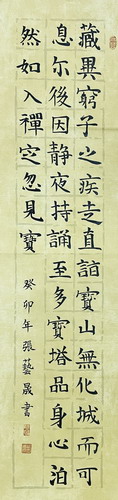 藏異窮子之疾走直詣寶山無化城而可
息尔後因静夜持誦至多寶塔品身心泊
然如入禪定忽見寶
癸卯年張藝晟書